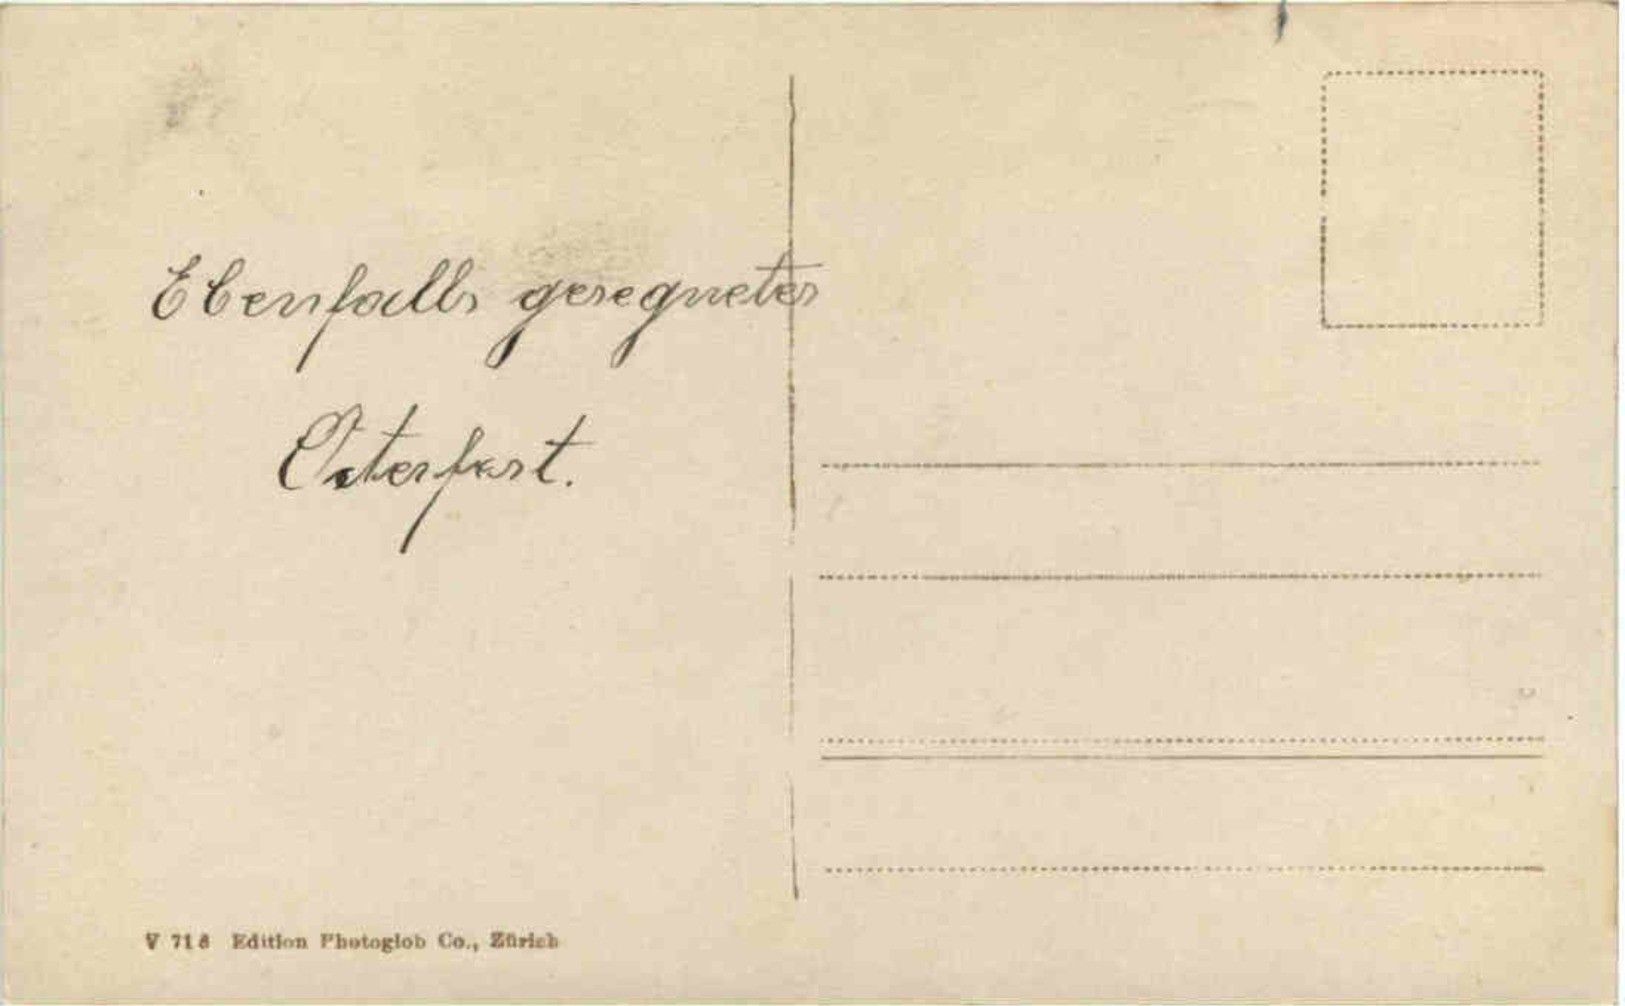 Ebenfalls gesegnetes
Osterfest.
V 718 Edition Photoglob Co., Zürich